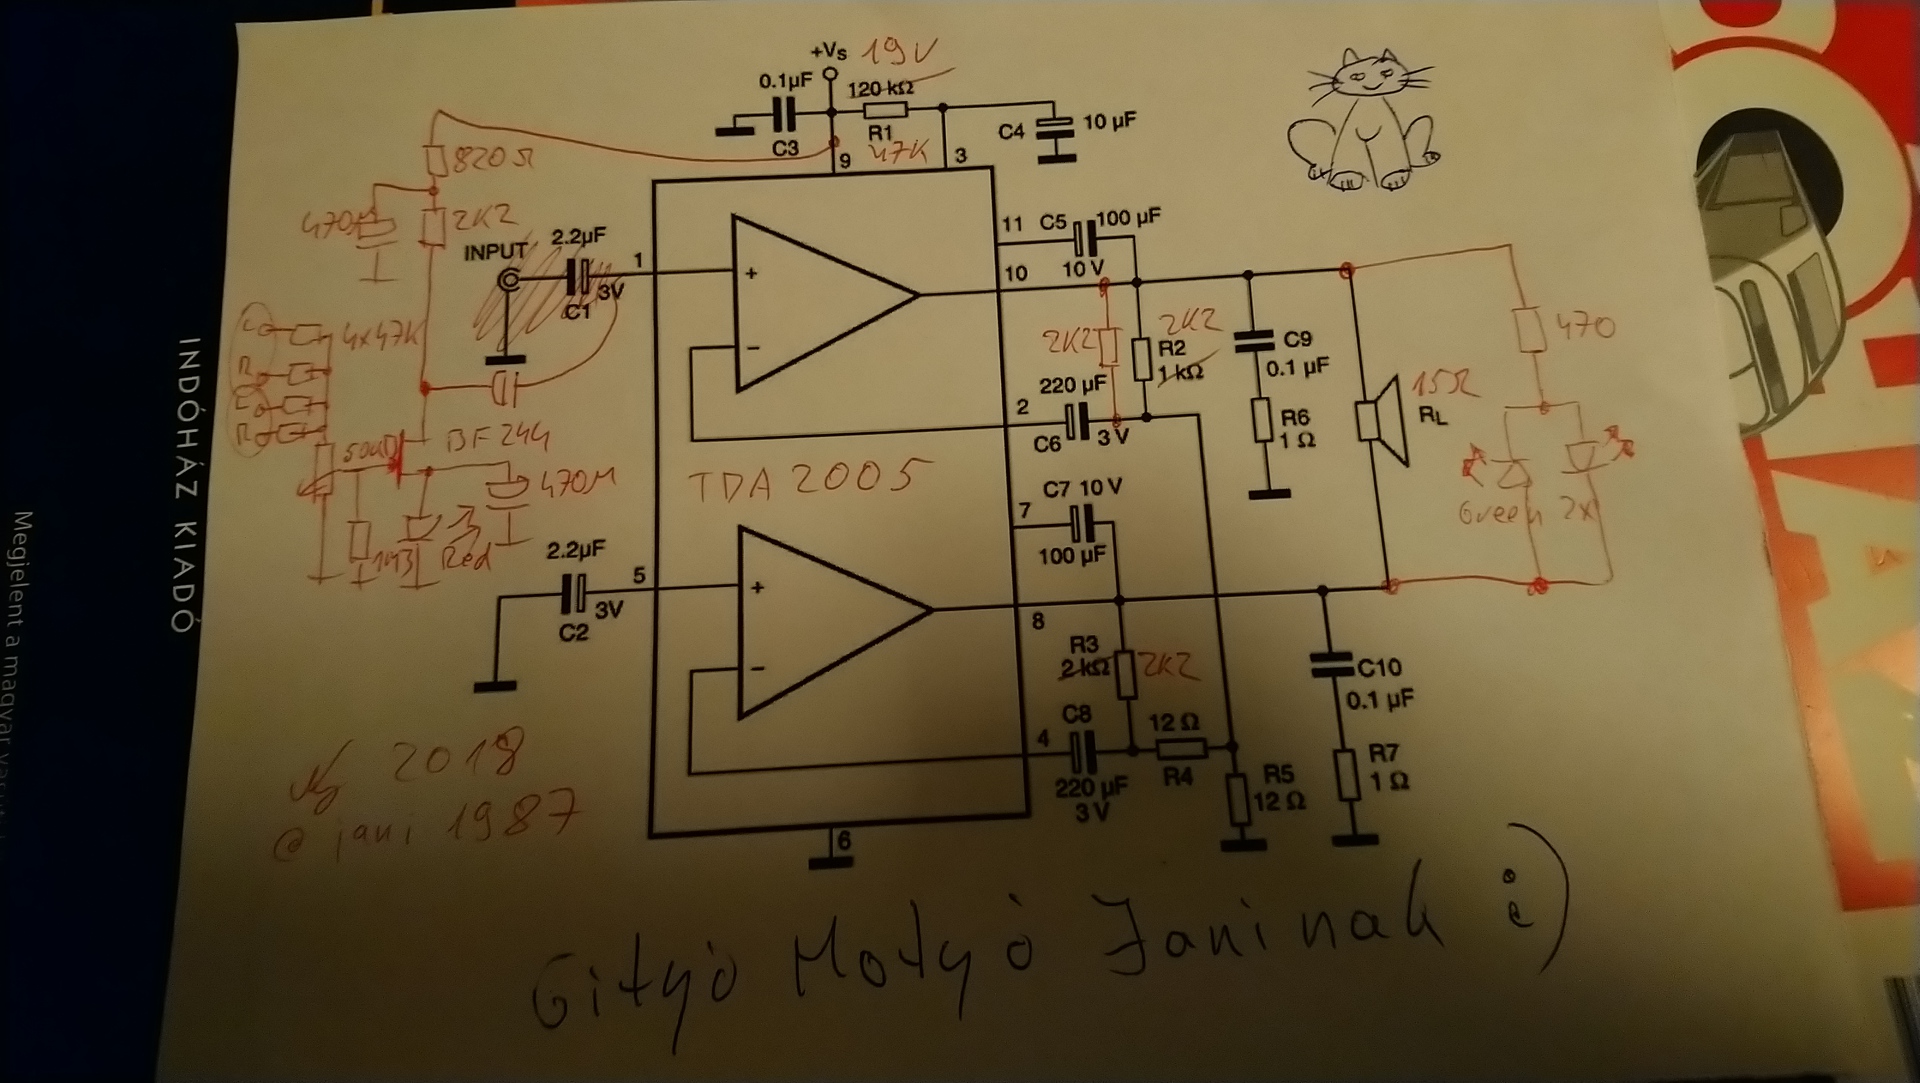 +Vs 19V
0.1µF
120 kΩ
R1
47K
C3
9
3
C4
10 µF
820Ω
470µ
2K2
INPUT
2.2µF
3V
C1
1
11
C5
100 µF
10 V
10
4x47K
L
R
L
R
50K
BF244
470µ
1M3
Red
2K2
2K2
R2
1 kΩ
220 µF
2
C6
3V
C9
0.1 µF
R6
1 Ω
15Ω
RL
470
Green 2x
TDA 2005
C7 10 V
7
100 µF
2.2µF
5
3V
C2
8
R3
2 kΩ
2K2
C8
4
220 µF
3 V
12 Ω
R4
R5
12 Ω
C10
0.1 µF
R7
1 Ω
6
2018
@ jani 1987
Gityó Motyó Janinak :)
INDÓHÁZ KIADÓ
Megjelent a magyar